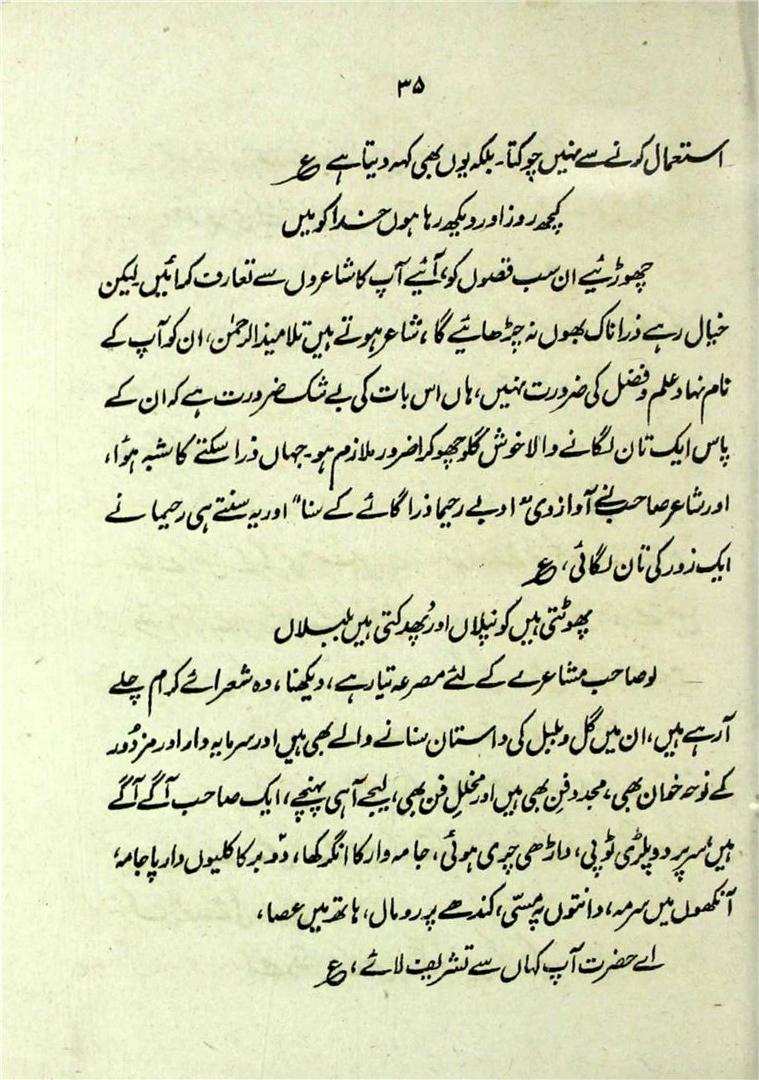 ۳۵
استعمال کرنے سے نہیں چوکتا۔ بلکہ یوں بھی کہہ دیتا ہے ؏
کچھ روز اور دیکھ رہا ہوں خدا کو میں
چھوڑئیے ان سب قصوں کو، آئیے آپ کا شاعروں سے تعارف کرائیں۔ لیکن
خیال رہے ذرا ناک بھوں نہ چڑھائیے گا، شاعر ہوتے ہیں تلامیذ الرحمٰن، ان کو آپ کے
نام نہاد علم و فضل کی ضرورت نہیں، ہاں اس بات کی بے شک ضرورت ہے کہ ان کے
پاس ایک تان لگانے والا خوش گلو چھوکرا ضرور ملازم ہو۔ جہاں ذرا سکتے کا شبہ ہؤا،
اور شاعر صاحب نے آواز دی "ادبے رحیما ذرا گائے کے سنا" اور یہ سنتے ہی رحیما نے
ایک زور کی تان لگائی، ؏
پھوٹتی ہیں کونپلاں اور پُھدکتی ہیں بلبلاں
لو صاحب مشاعرے کے لئے مصرعہ تیار ہے، دیکھنا، وہ شعرائے کرام چلے
آرہے ہیں، ان میں گل و بلبل کی داستان سنانے والے بھی ہیں اور سرمایہ دار اور مزدُور
کے نوحہ خوان بھی، مجدد فن بھی ہیں اور مخلِ فن بھی، لیجے آہی پہنچے، ایک صاحب آگے آگے
ہیں، سر پر دو پلڑی ٹوپی، داڑھی چِری ہوئی، جامہ وار کا انگرکھا، دو بر کا کلیوں دار پاجامہ،
آنکھوں میں سرمہ، دانتوں پہ مِسّی، کندھے پر رومال، ہاتھ میں عصا،
اے حضرت آپ کہاں سے تشریف لائے، ؏